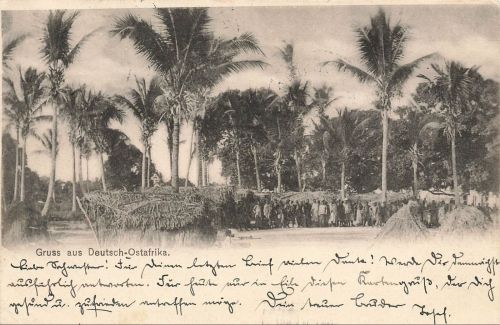 Gruss aus Deutsch-Ostafrika.
Liebe Schwester! Für Deinen letzten Brief vielen Dank! Werde Dir demnächst
ausführlich antworten. Für heut nur in Eile diesen Kartengruß, der Dich
gesund u. zufrieden antreffen möge. Dein treuer Bruder
Josef.